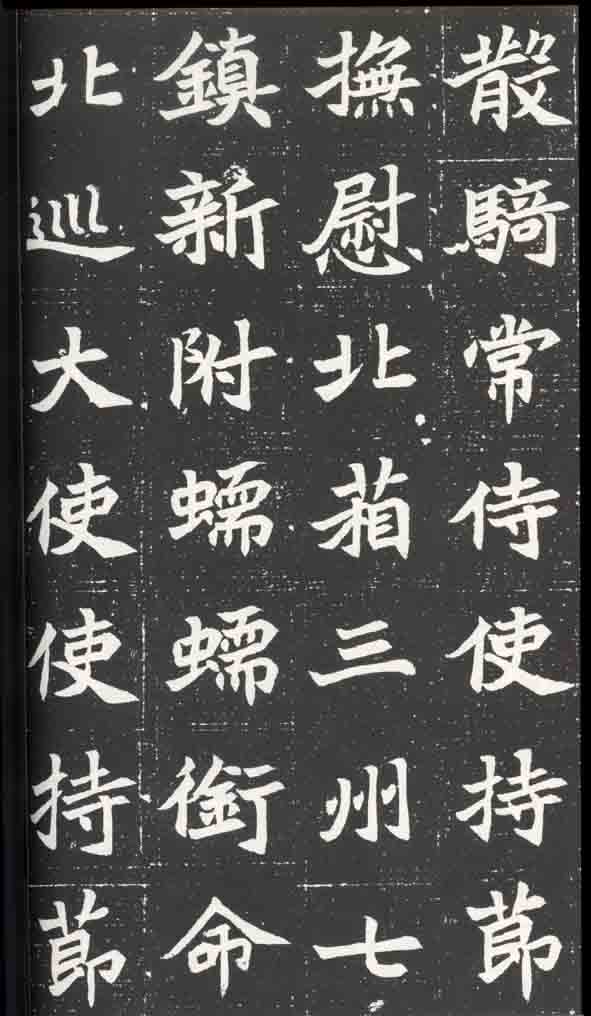 散騎常侍使持莭
撫慰北葙三州七
鎮新附蠕蠕銜命
北巡大使使持莭